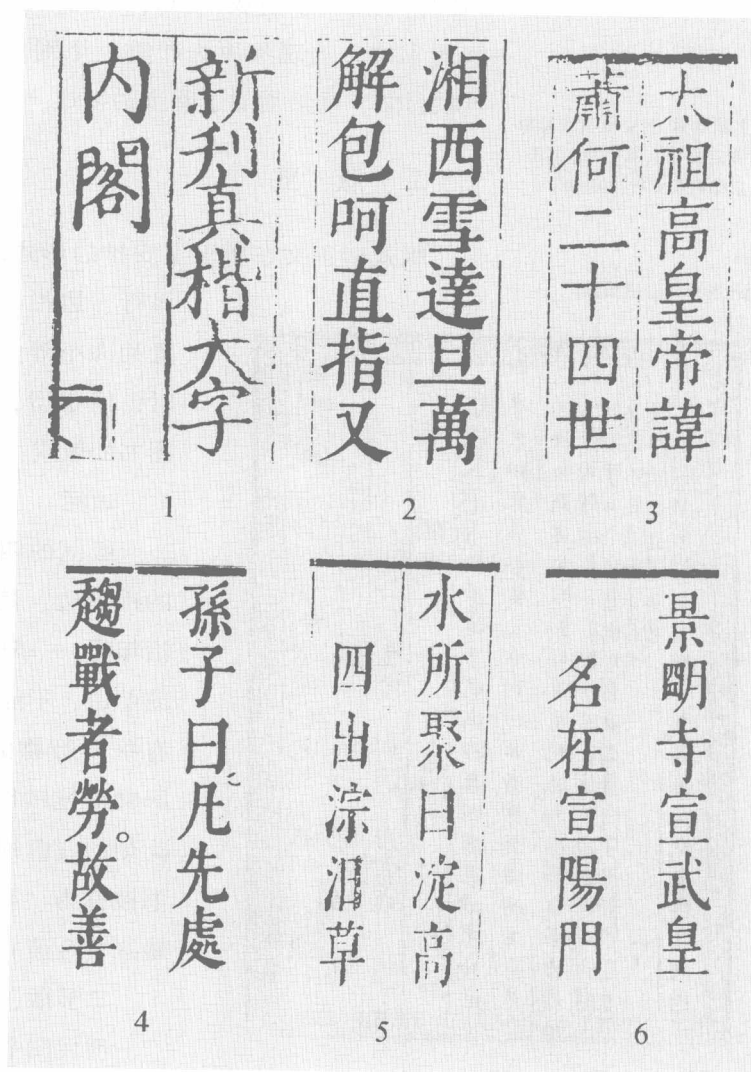 新刋真楷大字
内閣
1
湘西雪達旦萬
解包呵直指又
2
太祖高皇帝諱
蕭何二十四世
3
孫子曰凡先處
趨戰者勞。故善
4
水所聚曰淀高
四出淙泪草
5
景朙寺宣武皇
名在宣陽門
6